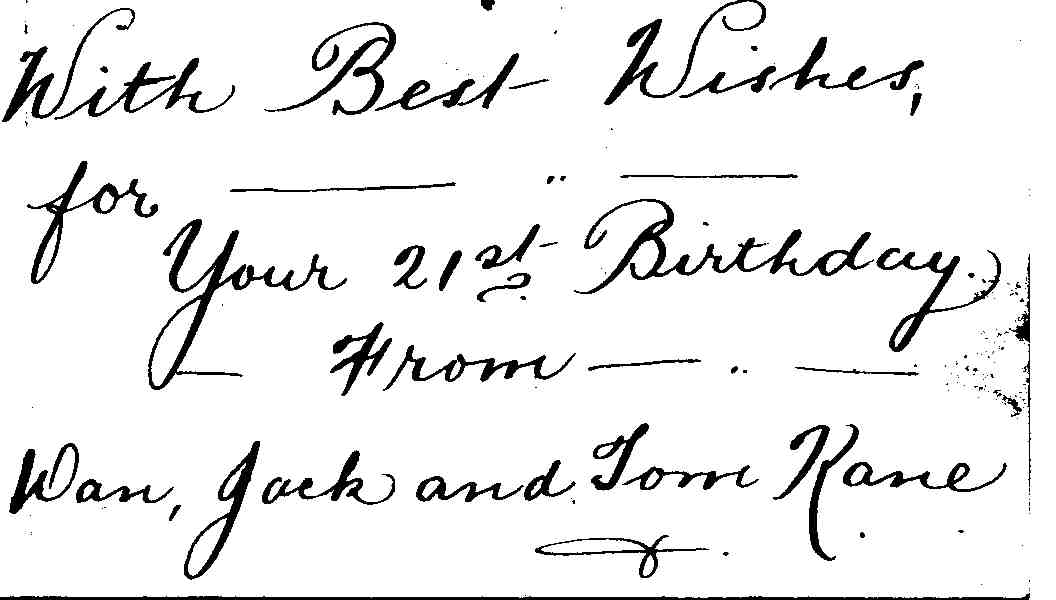 With Best Wishes,
for — " —
Your 21st Birthday.
— From — " —
Wan, Jack and Tom Kane